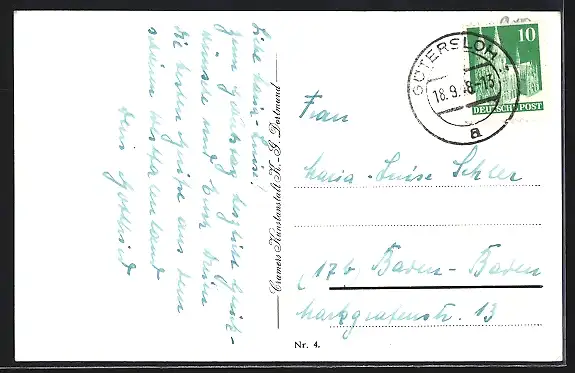 Liebe Marie-Luise!
Zum Geburtstag herzliche Glück-
wünsche und Euer Dreien
die besten Grüße aus dem
schönen Westfalenland
Dein Gottfried
Cramers Kunstanstalt K.-G. Dortmund
GÜTERSLOH
18.9.
a
10
DEUTSCHE POST
Frau
Maria-Luise
(17b Baden-Baden
Markgrafenstr. 13
Nr. 4.